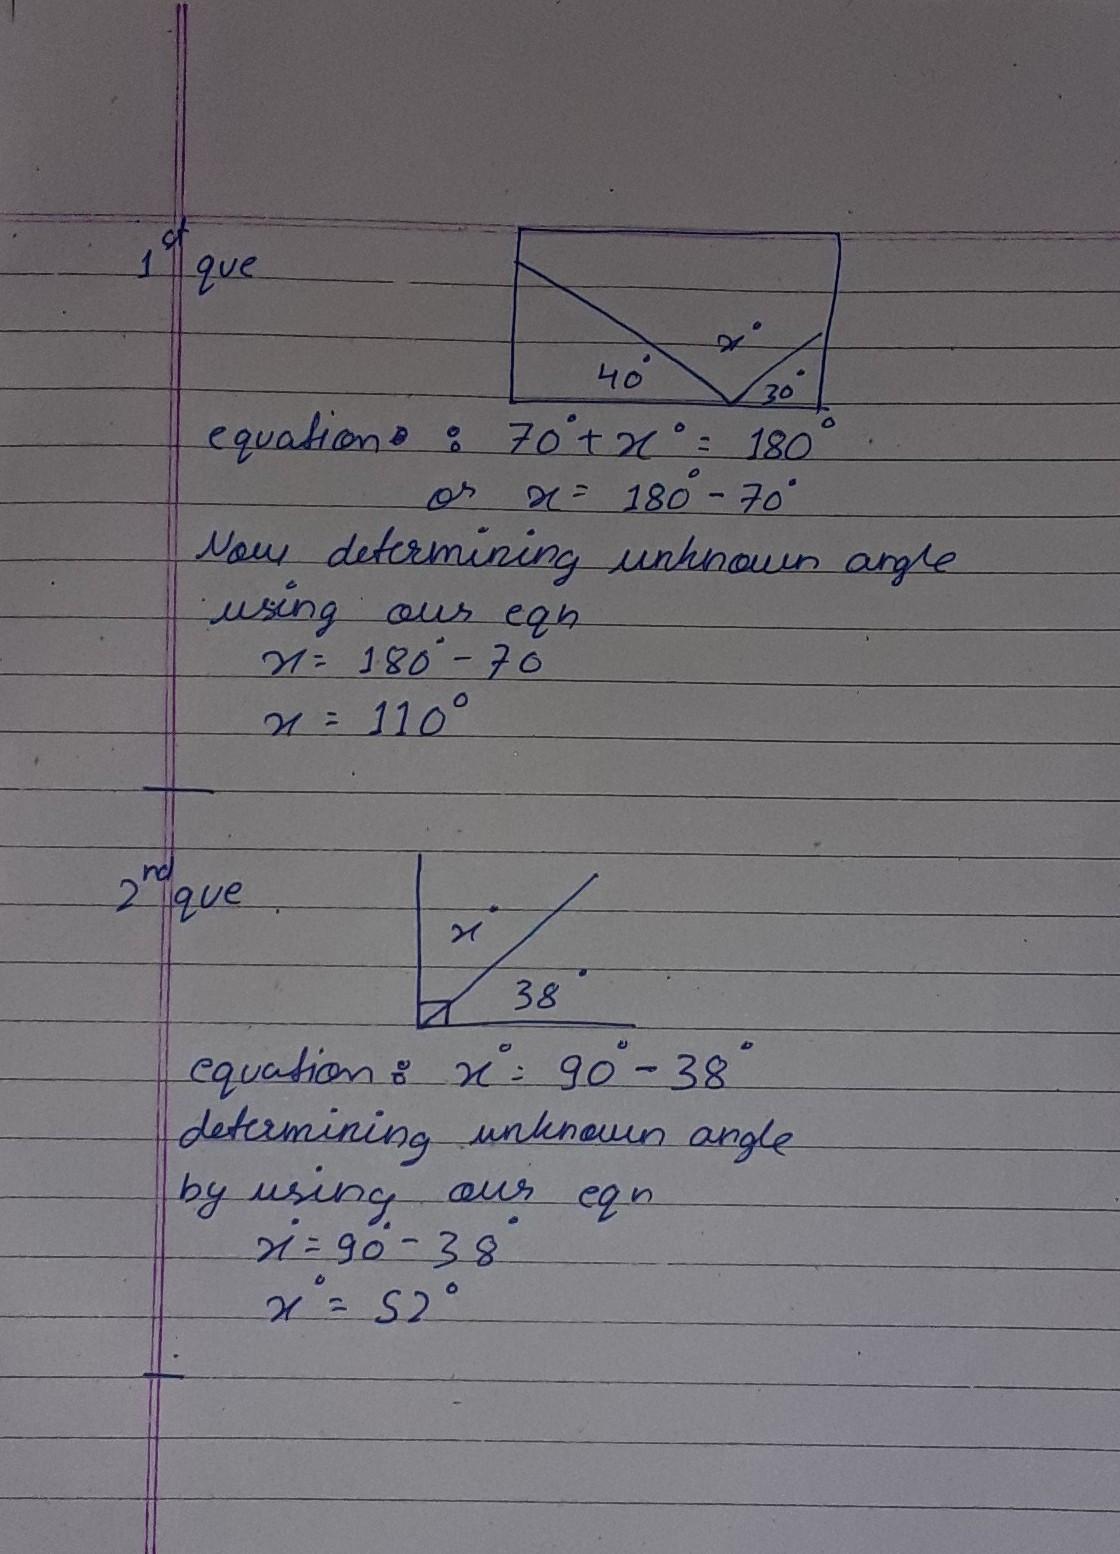 1st que
x°
40°
30°
equation : 70° + x° = 180°
or x = 180° - 70°
Now determining unknown angle
using our eqn
x = 180° - 70
x = 110°
2nd que
x°
38°
equation : x° = 90° - 38°
determining unknown angle
by using our eqn
x° = 90° - 38°
x° = 52°